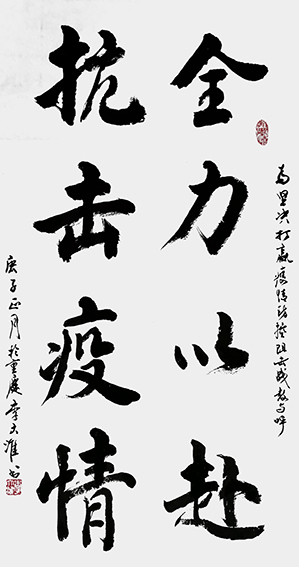 为坚决打赢疫情防控阻击战鼓与呼
全力以赴
抗击疫情
庚子正月於重慶李